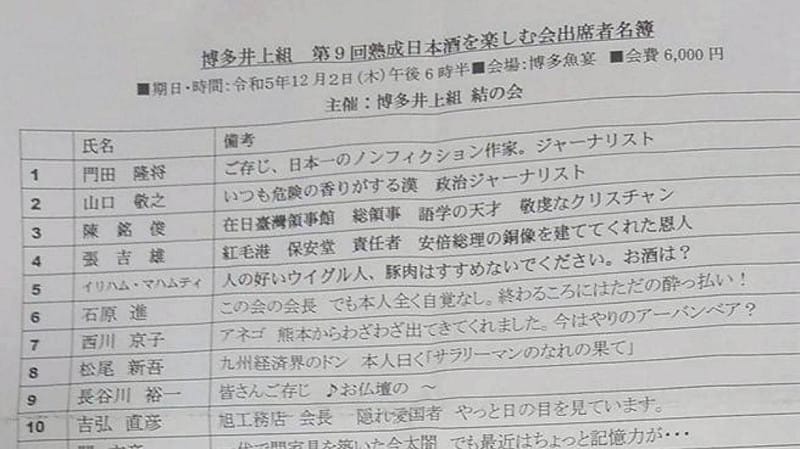 博多井上組　第９回熟成日本酒を楽しむ会出席者名簿
■期日・時間：令和5年12月2日（木）午後6時半■会場：博多魚宴　■会費 6,000円
主催：博多井上組 結の会
氏名 備考
1 門田　隆将 ご存じ、日本一のノンフィクション作家。ジャーナリスト
2 山口　敬之 いつも危険の香りがする漢　政治ジャーナリスト
3 陳　銘　俊 在日臺灣領事館　総領事　語学の天才　敬虔なクリスチャン
4 張　吉　雄 紅毛港　保安堂　責任者　安倍総理の銅像を建ててくれた恩人
5 イリハム・マハムティ 人の好いウイグル人、豚肉はすすめないでください。お酒は？
6 石原　進 この会の会長　でも本人全く自覚なし。終わるころにはただの酔っ払い！
7 西川　京子 アネゴ　熊本からわざわざ出てきてくれました。今はやりのアーバンベア？
8 松尾　新吾 九州経済界のドン　本人曰く「サラリーマンのなれの果て」
9 長谷川　裕一 皆さんご存じ　♪お仏壇の　～
10 吉弘　直彦 旭工務店　会長　隠れ愛国者　やっと日の目を見ています。
一代で間家具を築いた今太閤　でも最近はちょっと記憶力が・・・